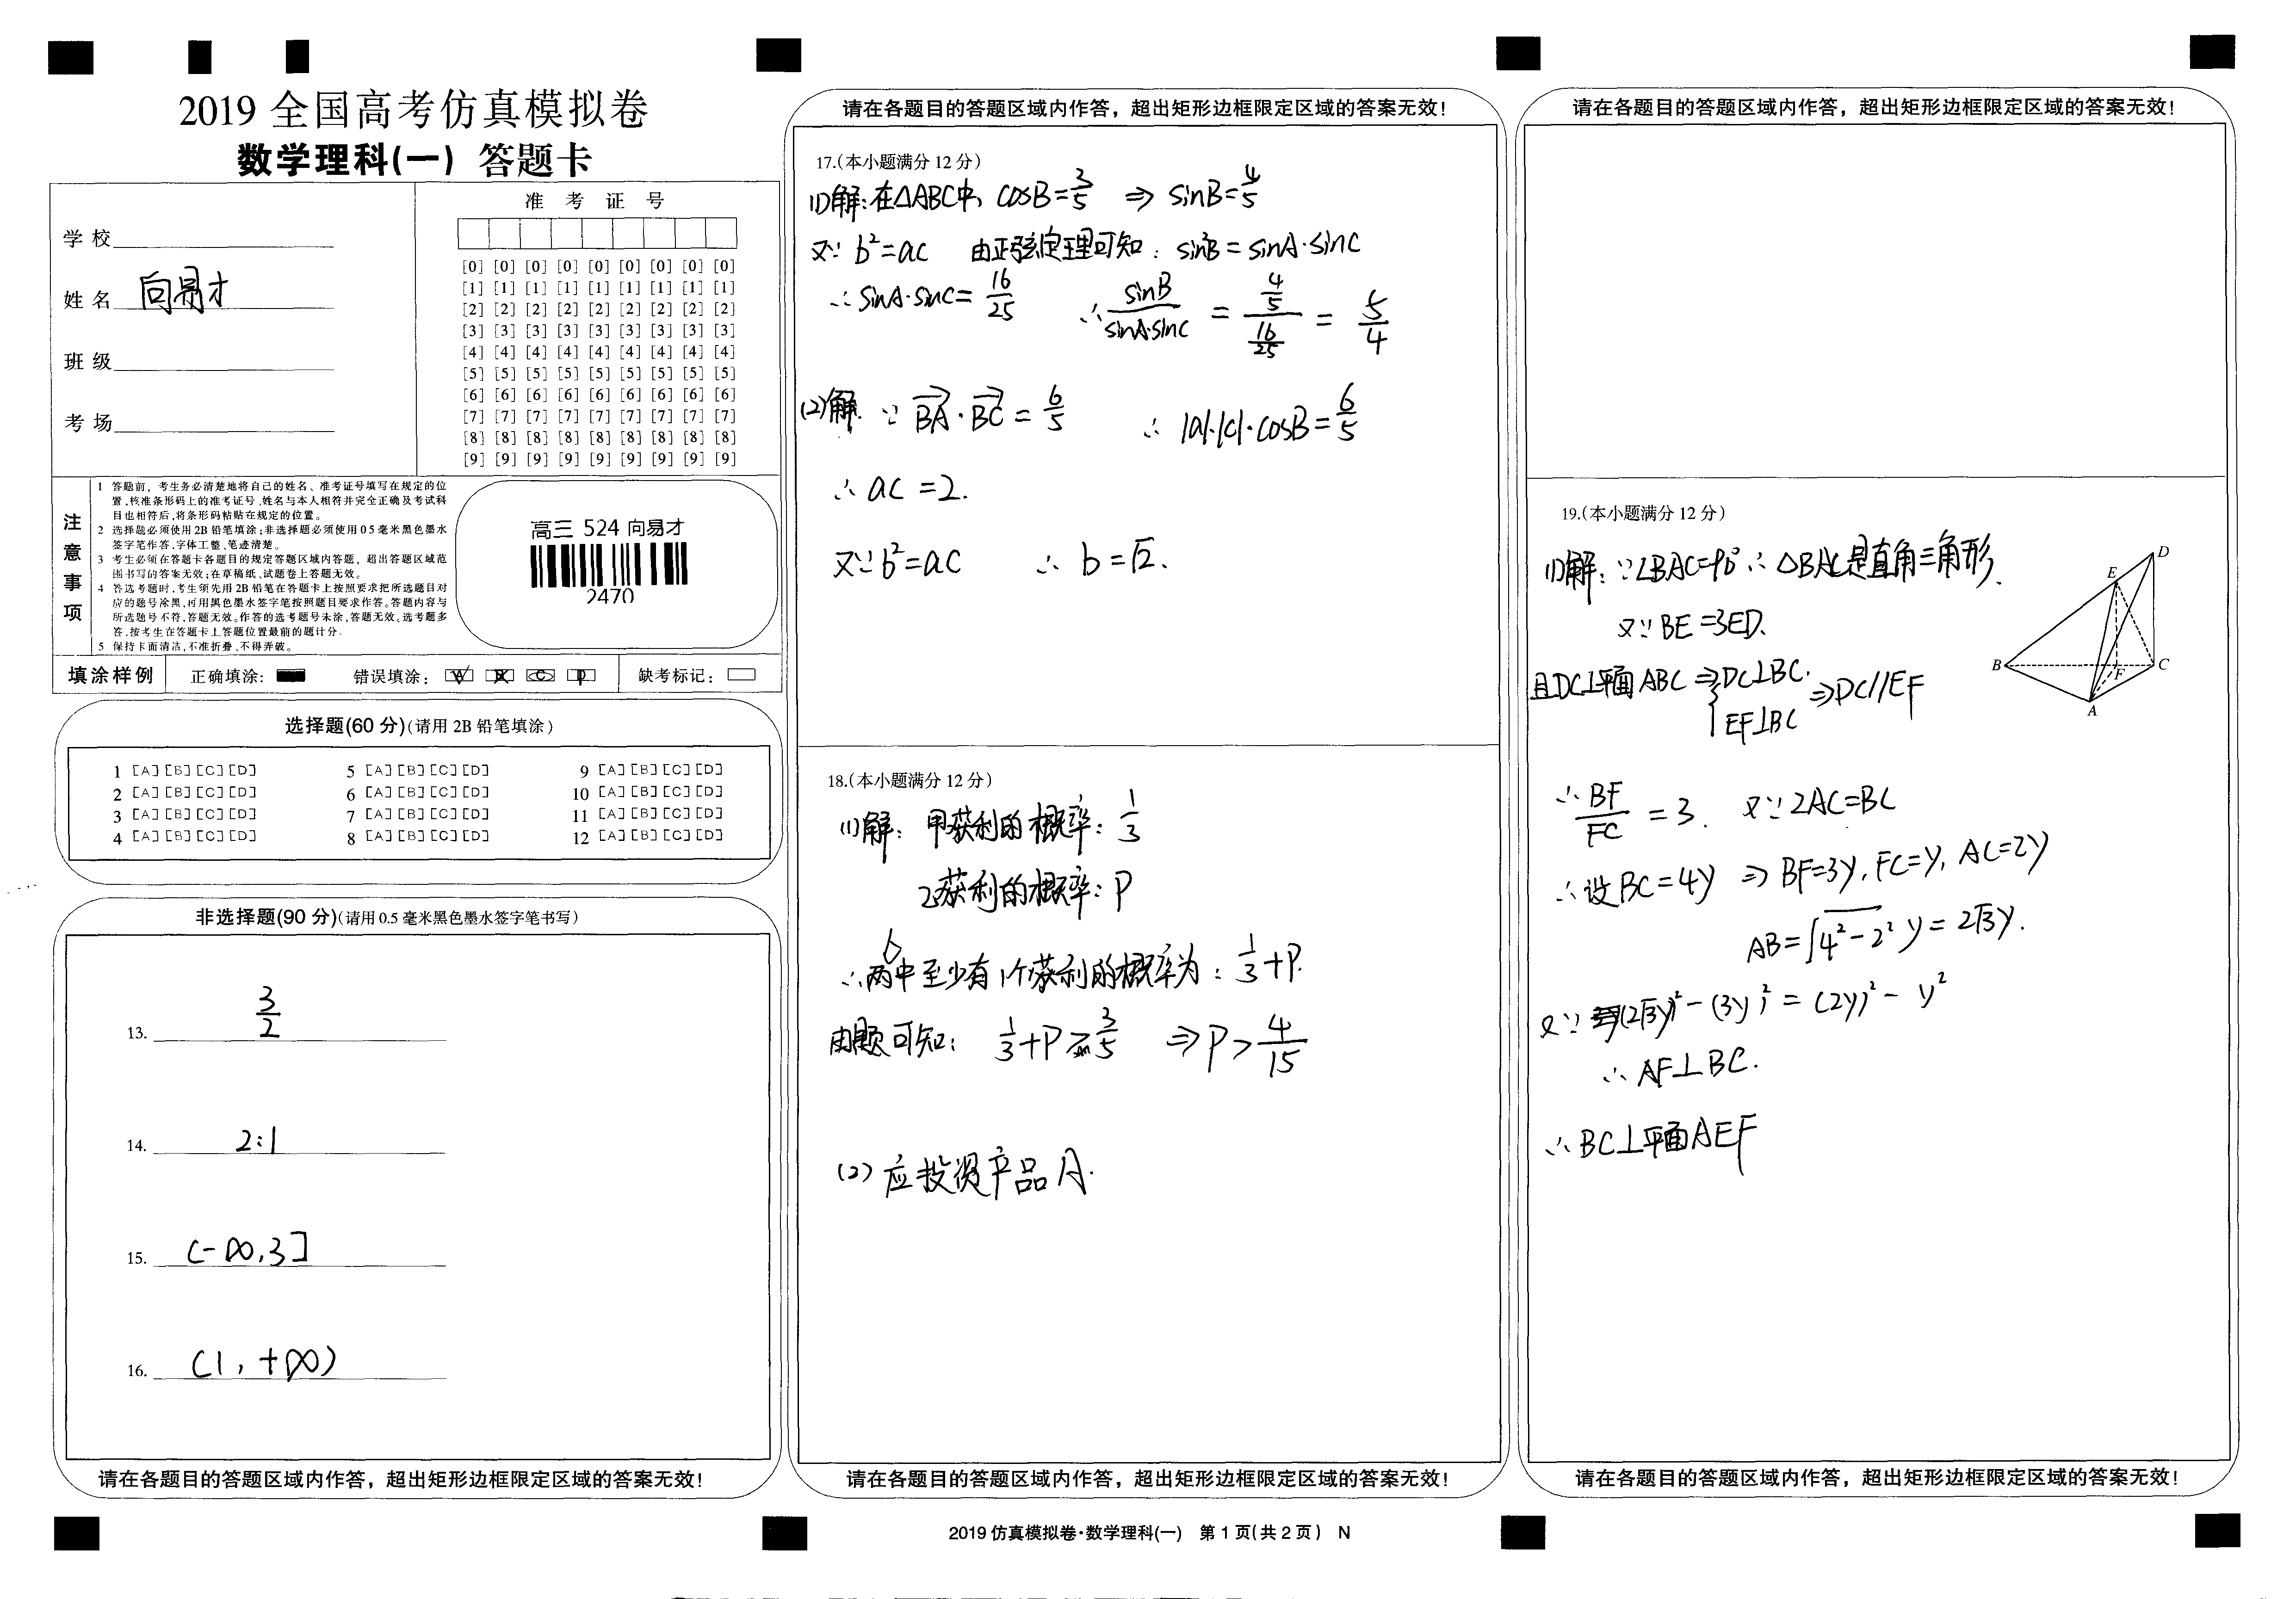 2019 全国高考仿真模拟卷
数学理科(一) 答题卡
学校
姓名 向易才
班级
考场
准 考 证 号
[0] [0] [0] [0] [0] [0] [0] [0] [0]
[1] [1] [1] [1] [1] [1] [1] [1] [1]
[2] [2] [2] [2] [2] [2] [2] [2] [2]
[3] [3] [3] [3] [3] [3] [3] [3] [3]
[4] [4] [4] [4] [4] [4] [4] [4] [4]
[5] [5] [5] [5] [5] [5] [5] [5] [5]
[6] [6] [6] [6] [6] [6] [6] [6] [6]
[7] [7] [7] [7] [7] [7] [7] [7] [7]
[8] [8] [8] [8] [8] [8] [8] [8] [8]
[9] [9] [9] [9] [9] [9] [9] [9] [9]
注意事项
1 答题前，考生务必清楚地将自己的姓名、准考证号填写在规定的位
置，核准条形码上的准考证号、姓名与本人相符并完全正确及考试科
目也相符后，将条形码粘贴在规定的位置。
2 选择题必须使用2B铅笔填涂；非选择题必须使用0 5毫米黑色墨水
签字笔作答，字体工整、笔迹清楚。
3 考生必须在答题卡各题目的规定答题区域内答题，超出答题区域范
围书写的答案无效；在草稿纸、试题卷上答题无效。
4 答选考题时，考生须先用2B铅笔在答题卡上按照要求把所选题目对
应的题号涂黑，再用黑色墨水签字笔按照题目要求作答。答题内容与
所选题号不符，答题无效。作答的选考题号未涂，答题无效。选考题多
答，按考生在答题卡上答题位置最前的题计分。
5 保持卡面清洁，不准折叠、不得弄破。
高三 524 向易才
2470
填涂样例 正确填涂： 错误填涂： 缺考标记：
选择题(60分)(请用 2B 铅笔填涂)
1 [A] [B] [C] [D] 5 [A] [B] [C] [D] 9 [A] [B] [C] [D]
2 [A] [B] [C] [D] 6 [A] [B] [C] [D] 10 [A] [B] [C] [D]
3 [A] [B] [C] [D] 7 [A] [B] [C] [D] 11 [A] [B] [C] [D]
4 [A] [B] [C] [D] 8 [A] [B] [C] [D] 12 [A] [B] [C] [D]
非选择题(90分)(请用 0.5 毫米黑色墨水签字笔书写)
13. 3/2
14. 2:1
15. (-∞,3]
16. (1,+∞)
请在各题目的答题区域内作答，超出矩形边框限定区域的答案无效！
请在各题目的答题区域内作答，超出矩形边框限定区域的答案无效！
17.(本小题满分 12 分)
(1)解:在△ABC中, cosB=3/5 ⇒ sinB=4/5
又∵ b²=ac 由正弦定理可知: sin²B=sinA·sinC
∴sinA·sinC=16/25 ∴ sinB/(sinA·sinC) = (4/5)/(16/25) = 5/4
(2)解 ∵ BA·BC=6/5 ∴ |a|·|c|·cosB=6/5
∴ ac=2.
又∵b²=ac ∴ b=√2.
18.(本小题满分 12 分)
(1)解: 甲获利的概率: 1/3
乙获利的概率: P
∴两个中至少有1个获利的概率为: 1/3+P.
由题可知: 1/3+P≥3/5 ⇒P>4/15
(2) 应投资产品A.
请在各题目的答题区域内作答，超出矩形边框限定区域的答案无效！
2019 仿真模拟卷·数学理科(一) 第 1 页(共 2 页) N
请在各题目的答题区域内作答，超出矩形边框限定区域的答案无效！
19.(本小题满分 12 分)
(1)解: ∵∠BAC=90° ∴ △BAC是直角三角形.
又∵ BE=3ED.
且DC⊥平面ABC ⇒ { DC⊥BC. EF⊥BC ⇒DC//EF
∴ BF/FC = 3. 又∵ 2AC=BC
∴设BC=4y ⇒ BF=3y, FC=y, AC=2y
AB=√(4²-2²) y=2√3y.
又∵ (2√3y)²-(3y)²=(2y)²-y²
∴ AF⊥BC.
∴BC⊥平面AEF
D
E
B
C
F
A
请在各题目的答题区域内作答，超出矩形边框限定区域的答案无效！